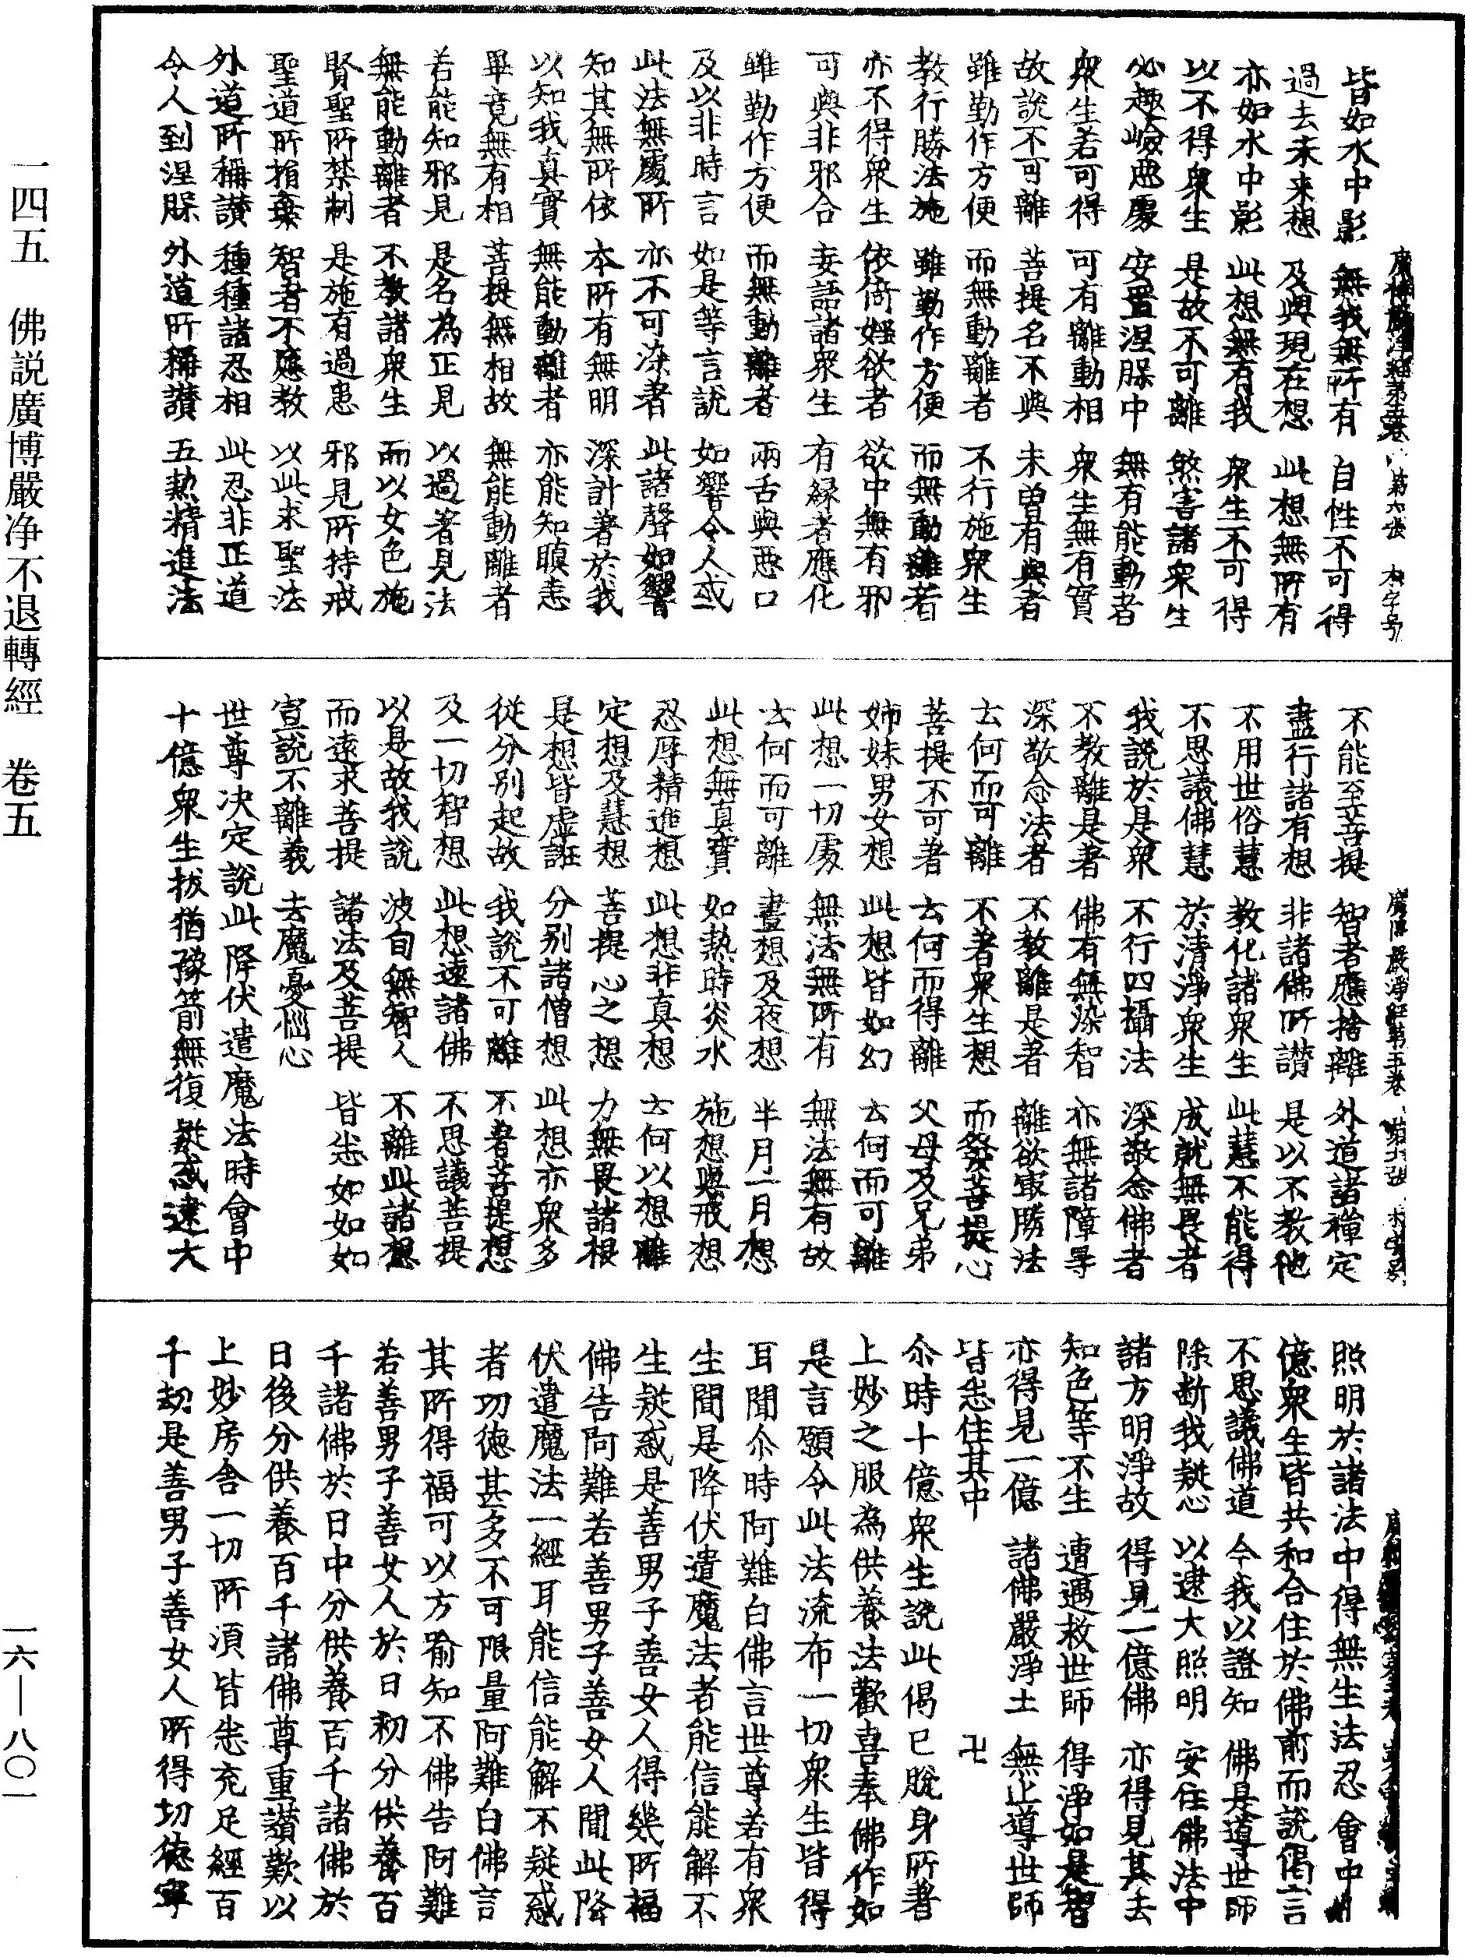 皆如水中影 無我無所有 自性不可得
過去未来想 及與現在想 此想無所有
亦如水中影 此想無有我 衆生不可得
以不得衆生 是故不可離 煞害諸衆生
必趣嶮悪處 安置涅脲中 無有能動者
衆生若可得 可有離動相 衆生無有實
故說不可離 菩提名不與 未曽有與者
雖勤作方便 而無動離者 不行施衆生
教行勝法施 雖勤作方便 而無動離者
亦不得衆生 依倚婬欲者 欲中無有邪
可與非邪合 妄語諸衆生 有緣者應化
雖勤作方便 而無動離者 兩舌與悪口
及以非時言 如是等言說 如響令人或
此法無處所 亦不可染者 此諸聲如響
知其無所依 本所有無明 深計著於我
以知我真實 無能動離者 亦能知瞋恚
畢竟無有相 菩提無相故 無能動離者
若能知邪見 是名為正見 以過著見法
無能動離者 不教諸衆生 而以女色施
賢聖所禁制 是施有過患 邪見所持戒
聖道所捐棄 智者不應教 以此求聖法
外道所稱讃 種種諸忍相 此忍非正道
令人到涅脲 外道所稱讃 五熱精進法
不能至菩提 智者應捨離 外道諸禪定
盡行諸有想 非諸佛所讃 是以不教他
不用世俗慧 教化諸衆生 此慧不能得
不思議佛慧 於清淨衆生 成就無畏者
我說於是衆 不行四攝法 深敬念佛者
不教離是著 佛有無染智 亦無諸障㝵
深敬念法者 不教離是著 離欲寂勝法
去何而可離 不著衆生想 而發菩提心
菩提不可著 去何而得離 父母及兄弟
姉妹男女想 此想皆如幻 去何而可離
此想一切處 無法無所有 無法無有故
去何而可離 晝想及夜想 半月一月想
此想無真實 如熱時炎水 施想與戒想
忍辱精進想 此想非真想 去何以想離
定想及慧想 菩提心之想 力無畏諸根
是想皆虛誑 分别諸僧想 此想亦衆多
從分别起故 我說不可離 不著菩提想
及一切智想 此想遠諸佛 不思議菩提
以是故我說 波旬無智人 不離此諸想
而遠求菩提 諸法及菩提 皆悉如如如
宣說不離義 去魔憂惱心
世尊决定說此降伏遣魔法時會中
十億衆生拔猶豫箭無復疑惑逮大
照明於諸法中得無生法忍會中十
億衆生皆共和合住於佛前而說偈言
不思議佛道 今我以證知 佛是導世師
除断我疑心 以逮大照明 安住佛法中
諸方明淨故 得見一億佛 亦得見其去
知色等不生 遭遇救世師 得淨如是智
亦得見一億 諸佛嚴淨土 無止導世師
皆悉住其中 卍
尒時十億衆生說此偈已脫身所著
上妙之服為供養法歡喜奉佛作如
是言願令此法流布一切衆生皆得
耳聞尒時阿難白佛言世尊若有衆
生聞是降伏遣魔法者能信能解不
生疑惑是善男子善女人得幾所福
佛告阿難若善男子善女人聞此降
伏遣魔法一經耳能信能解不疑惑
者功徳甚多不可限量阿難白佛言
其所得福可以方喻知不佛告阿難
若善男子善女人於日初分供養百
千諸佛於日中分供養百千諸佛於
日後分供養百千諸佛尊重讃歎以
上妙房舍一切所湏皆悉充足經百
千劫是善男子善女人所得功徳寧
一四五 佛説廣博嚴净不退轉經 卷五
一六—八〇一